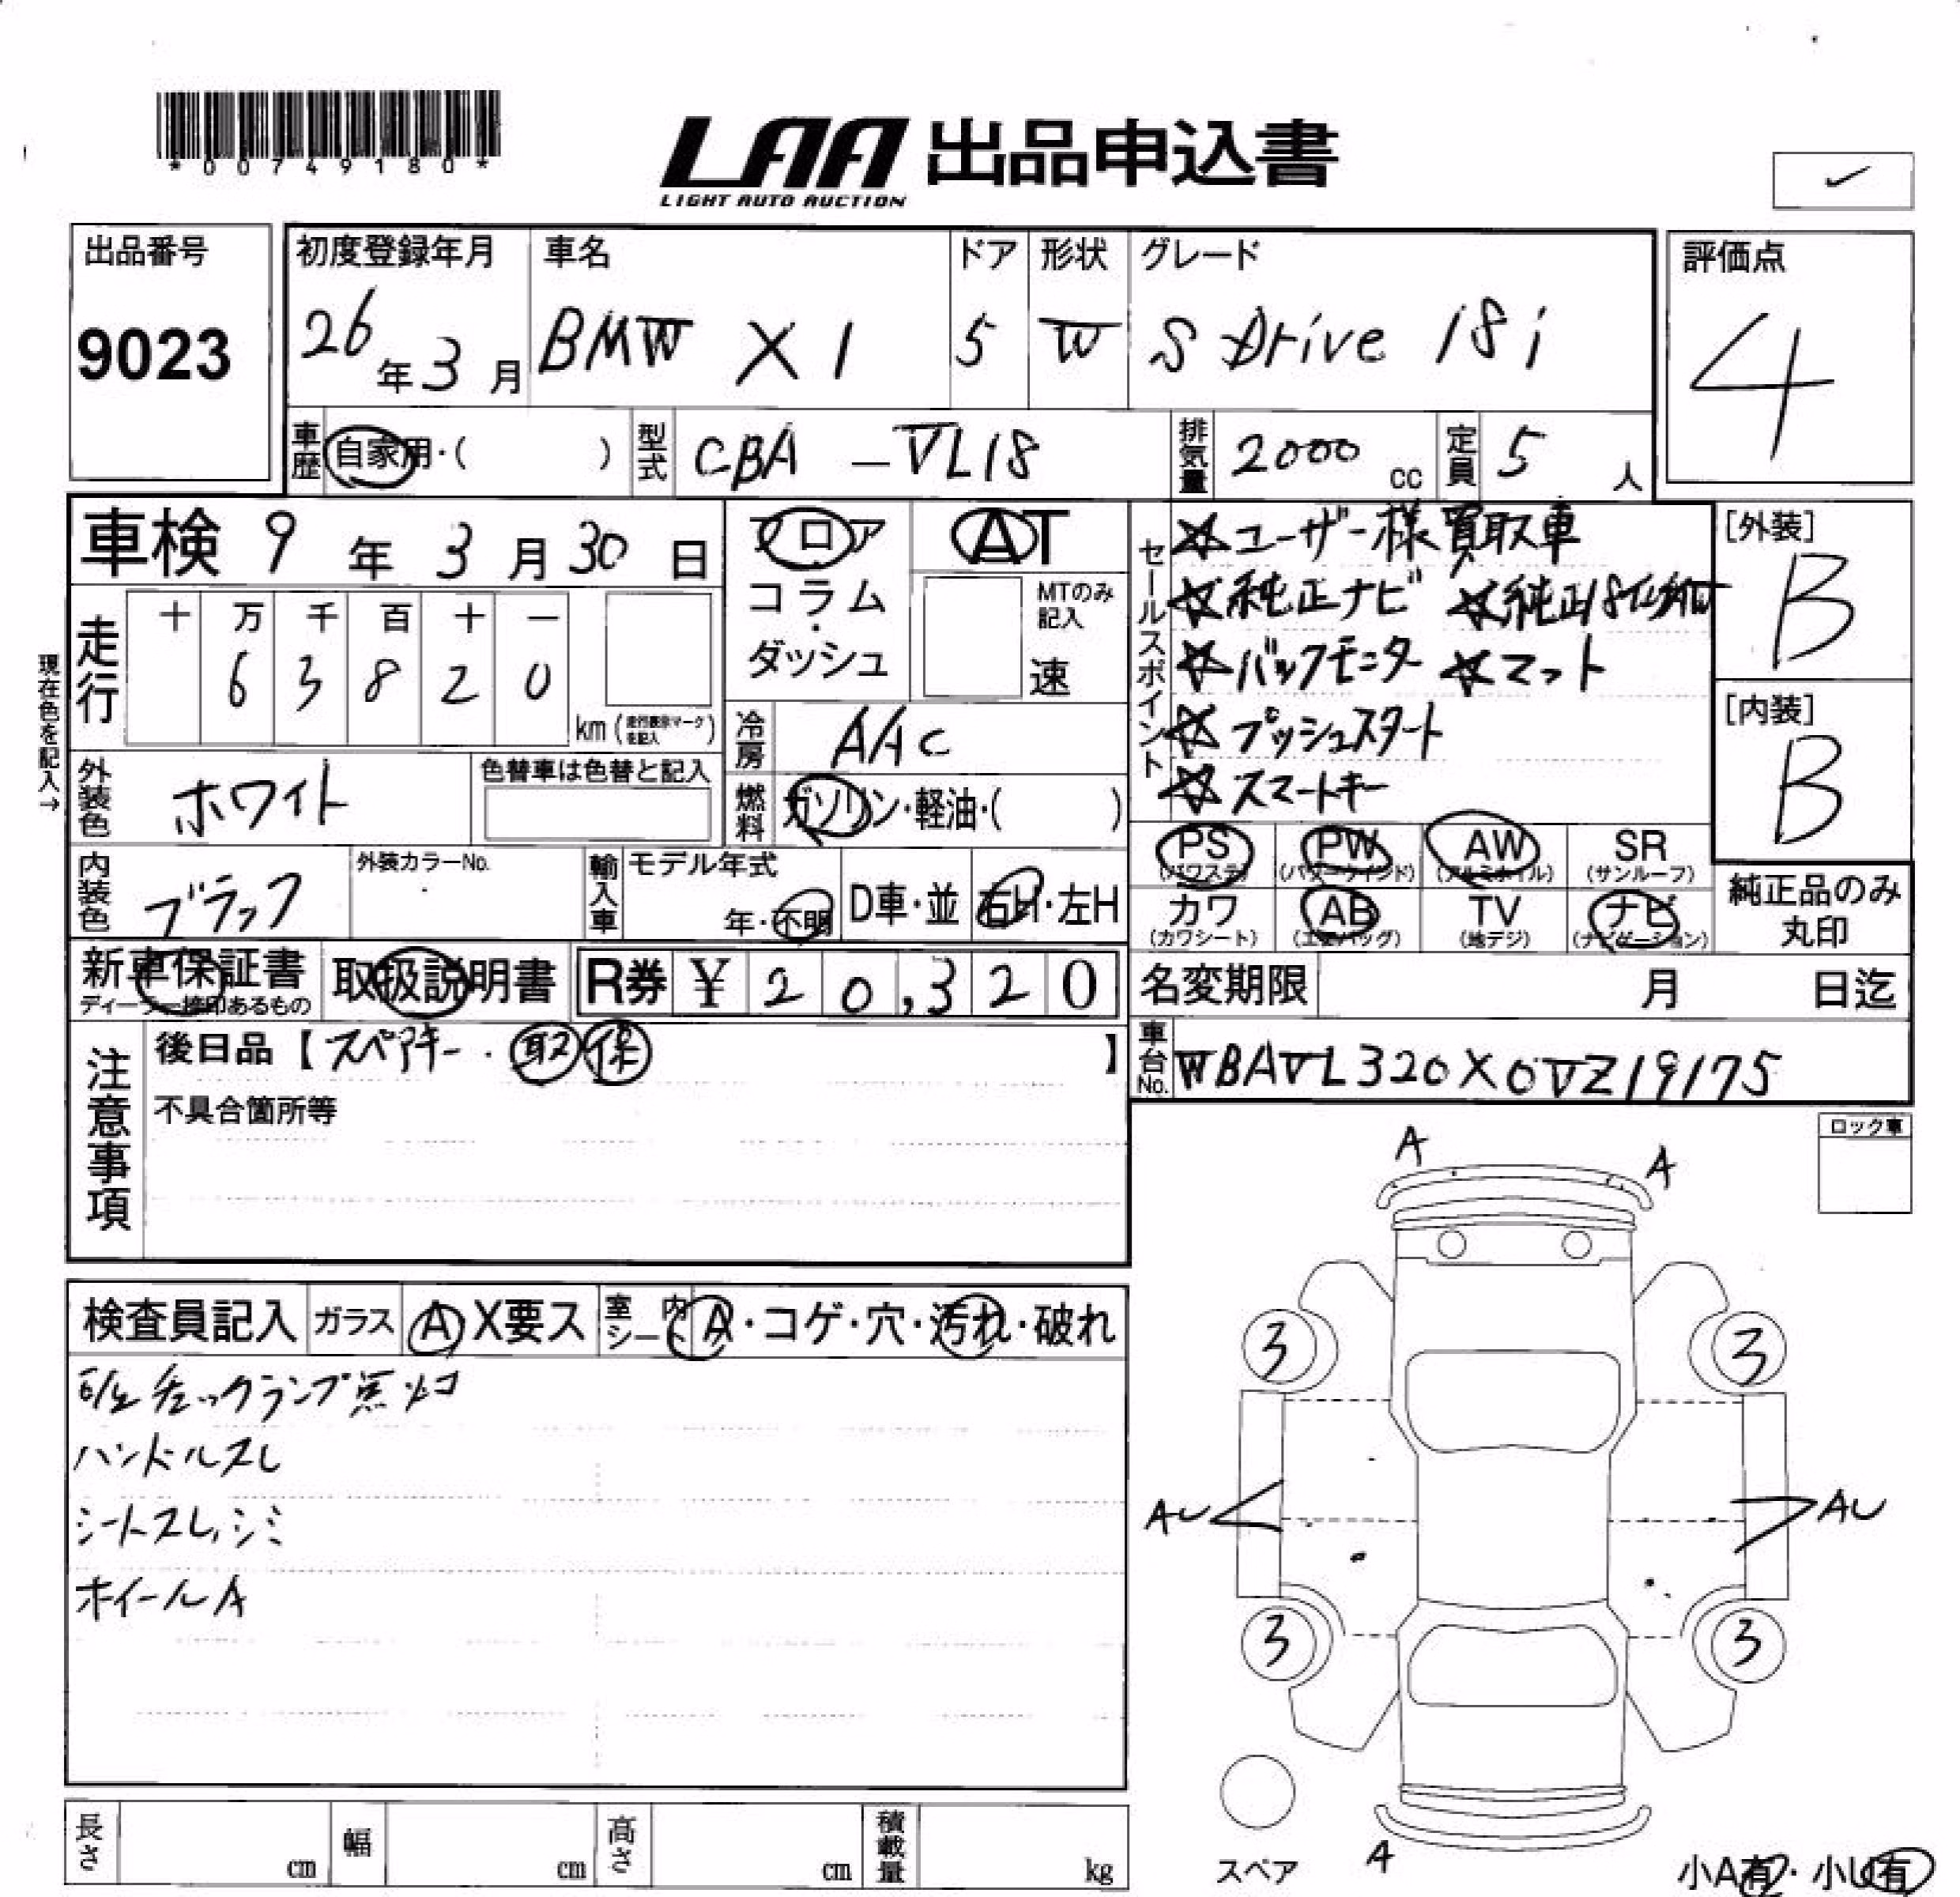 *00749180*
LAA 出品申込書
LIGHT AUTO AUCTION
出品番号
9023
初度登録年月
26年3月
車名
BMW X1
ドア
5
形状
W
グレード
S Drive 18i
評価点
4
車歴
自家用・( )
型式
CBA-VL18
排気量
2000 cc
定員
5 人
車検 9年3月30日
フロア
コラム・
ダッシュ
AT
MTのみ
記入
速
セールスポイント
☆ユーザー様買取車
☆純正ナビ ☆純正18
☆バックモニター ☆マット
☆プッシュスタート
☆スマートキー
[外装]
B
[内装]
B
現在色を記入→
走行
十 万 千 百 十 一
6 3 8 2 0
km (走行表示マークを記入)
冷房
AAC
外装色
ホワイト
色替車は色替と記入
燃料
ガソリン・軽油・( )
内装色
ブラック
外装カラーNo.
輸入車
モデル年式
年・不明
D車・並
右H・左H
PS
(パワステ)
PW
(パワーウインド)
AW
(アルミホイル)
SR
(サンルーフ)
カワ
(カワシート)
AB
(エアバッグ)
TV
(地デジ)
ナビ
(ナビゲーション)
純正品のみ
丸印
新車保証書
ディーラー捺印あるもの
取扱説明書
R券 ¥ 20,320
名変期限
月 日迄
注意事項
後日品【スペアキー・取 保】
不具合箇所等
車台No.
WBAVL320X0VZ19175
ロック車
A
A
検査員記入
ガラス
A X要ス
室内
シート
A・コゲ・穴・汚れ・破れ
チェックランプ点灯
ハンドルスレ
シートスレ、シミ
ホイールA
3
3
AU
AU
3
3
スペア
A
小A有・小U有
長さ
cm
幅
cm
高さ
cm
積載量
kg